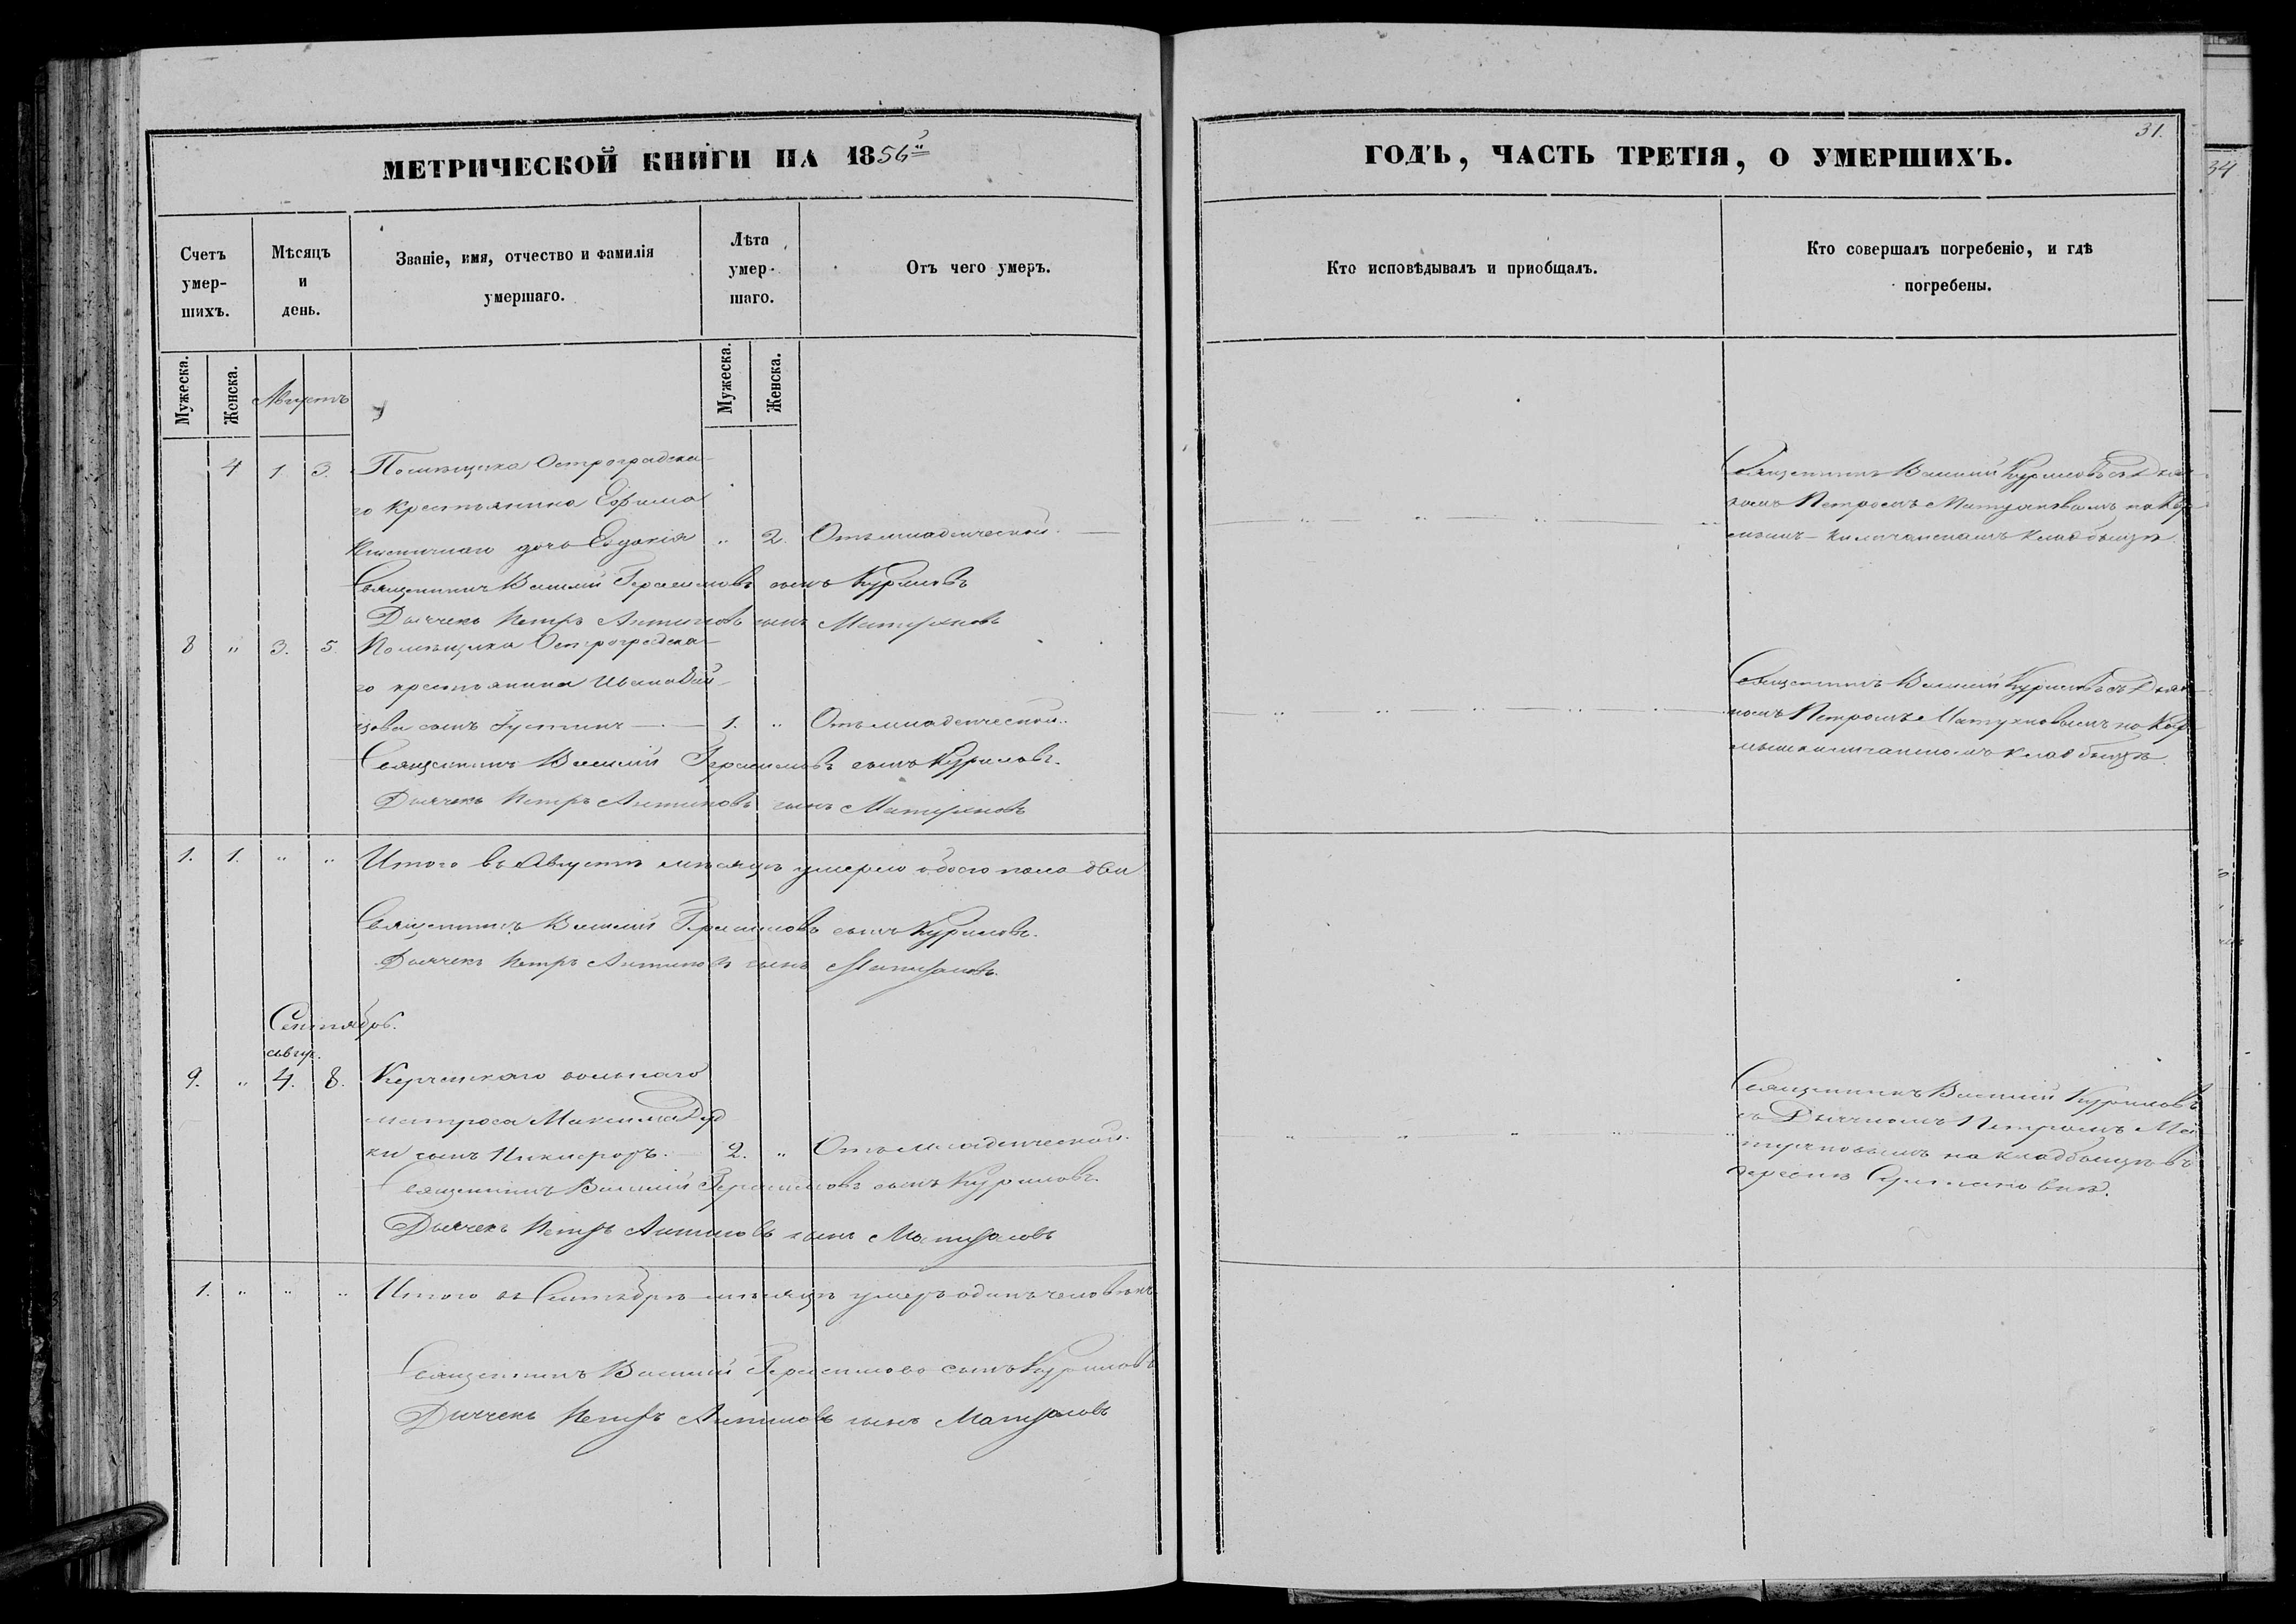 МЕТРИЧЕСКОЙ КНИГИ НА 1856й
ГОДЪ, ЧАСТЬ ТРЕТІЯ, О УМЕРШИХЪ.
31.
34
Счетъ умер-
шихъ.
Мѣсяцъ
и
день.
Званіе, имя, отчество и фамилія
умершаго.
Лѣта
умер-
шаго.
Отъ чего умеръ.
Кто исповѣдывалъ и приобщалъ.
Кто совершалъ погребеніе, и гдѣ
погребены.
Мужеска.
Женска.
Августъ
Мужеска.
Женска.
4 1 3. Помѣщика Остроградска-
го крестьянина Ефима
дочь Евдокія " 2. Отъ младенческой.
Священникъ Василій Куриловъ съ Дьяч-
комъ Петромъ
кладбищѣ.
Священникъ Василій Герасимовъ сынъ Куриловъ
Дьячекъ Петръ Антиповъ сынъ
8 " 3. 5. Помѣщика Остроградска-
го крестьянина Ивана
сынъ Іустинъ 1. " Отъ младенческой.
Священникъ Василій Куриловъ съ Дьяч-
комъ Петромъ
кладбищѣ.
Священникъ Василій Герасимовъ сынъ Куриловъ.
Дьячекъ Петръ Антиповъ сынъ
1. 1. " " Итого въ Августѣ мѣсяцѣ умерло обоего пола два
Священникъ Василій Герасимовъ сынъ Куриловъ.
Дьячекъ Петръ Антиповъ сынъ
Сентябрь.
авгус.
9. " 4. 8. Керченскаго вольнаго
матроса Максима Дуд
ки сынъ Никифоръ. 2. " Отъ младенческой.
Священникъ Василій Куриловъ
съ Дьячкомъ Петромъ
на кладбищѣ въ
деревнѣ
Священникъ Василій Герасимовъ сынъ Куриловъ.
Дьячекъ Петръ Антиповъ сынъ
1. " " " Итого въ Сентябрѣ мѣсяцѣ умеръ одинъ человѣкъ
Священникъ Василій Герасимовъ сынъ Куриловъ
Дьячекъ Петръ Антиповъ сынъ